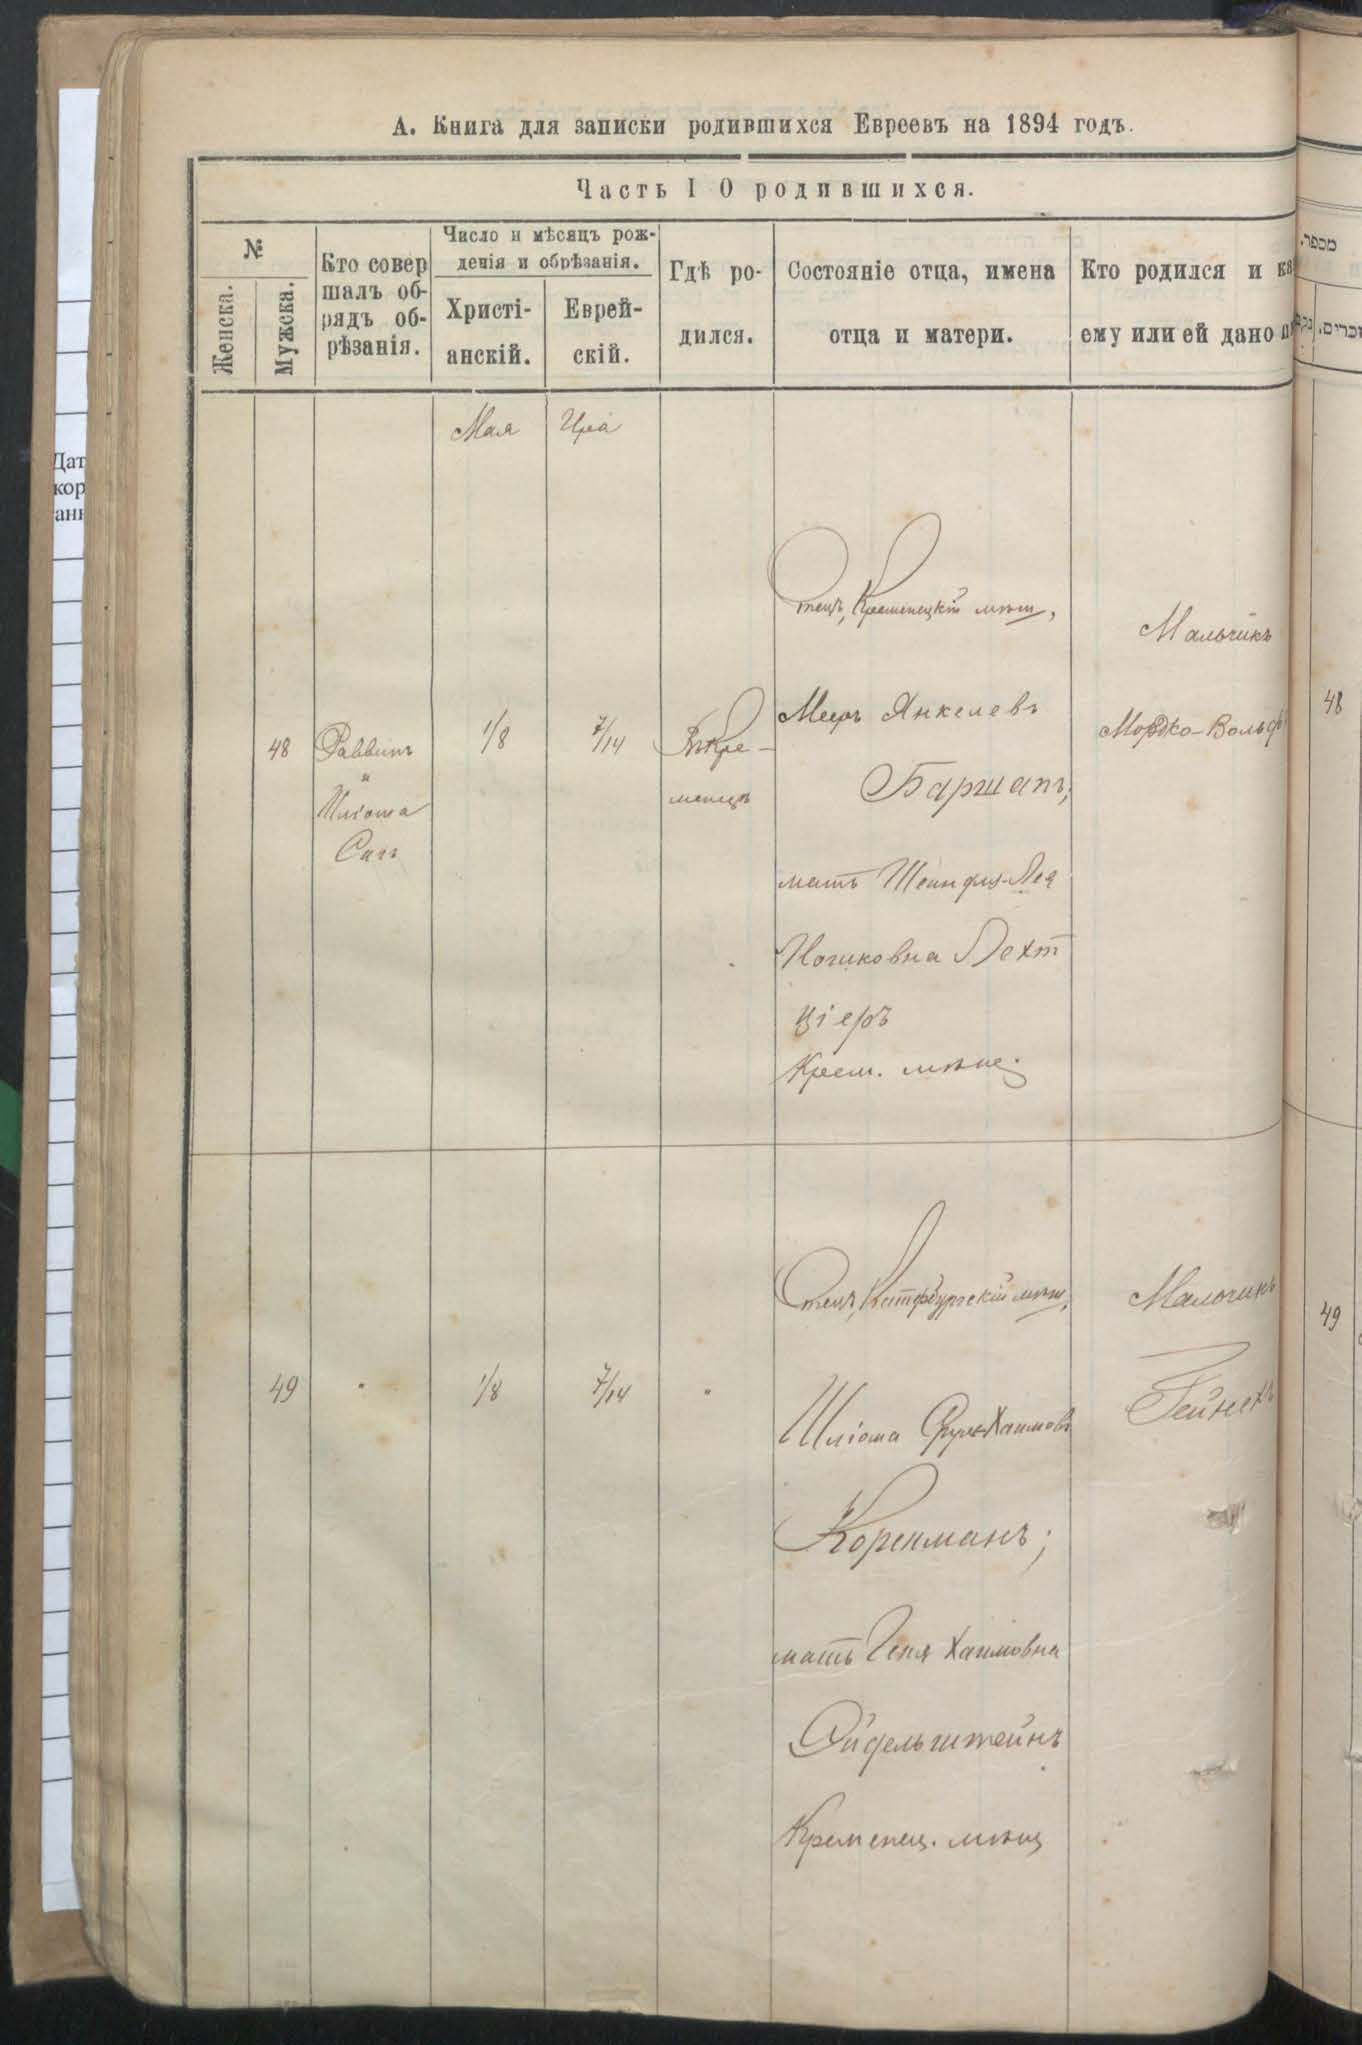 А. Книга для записки родившихся Евреевъ на 1894 годъ.
Часть I О родившихся.
№
Женска.
Мужска.
Кто совер
шалъ об-
рядъ об-
рѣзанія.
Число и мѣсяцъ рож-
денія и обрѣзанія.
Христі-
анскій.
Еврей-
скій.
Гдѣ ро-
дился.
Состояніе отца, имена
отца и матери.
Кто родился и ка
ему или ей дано
Мая
48
Раввинъ
и
Шліома
1/8
7/14
Въ Кре-
менцѣ
Отецъ, Кременецкій мѣщ.,
Мееръ Янкелевъ
Баршапъ;
мать Шейндля-Лея
Ицковна Лехт
ціеръ
Крем. мѣщ.
Мальчикъ
Мордко-Вольф
49
"
1/8
7/14
"
Отецъ, Катербургскій мѣщ.,
Шліома Хаимовъ
Коренманъ;
мать Геня Хаимовна
Эйдельштейнъ
Кременец. мѣщ
Мальчикъ
Гейнехъ
מספר.
זכרים.
48
49
Дат
кор
анн